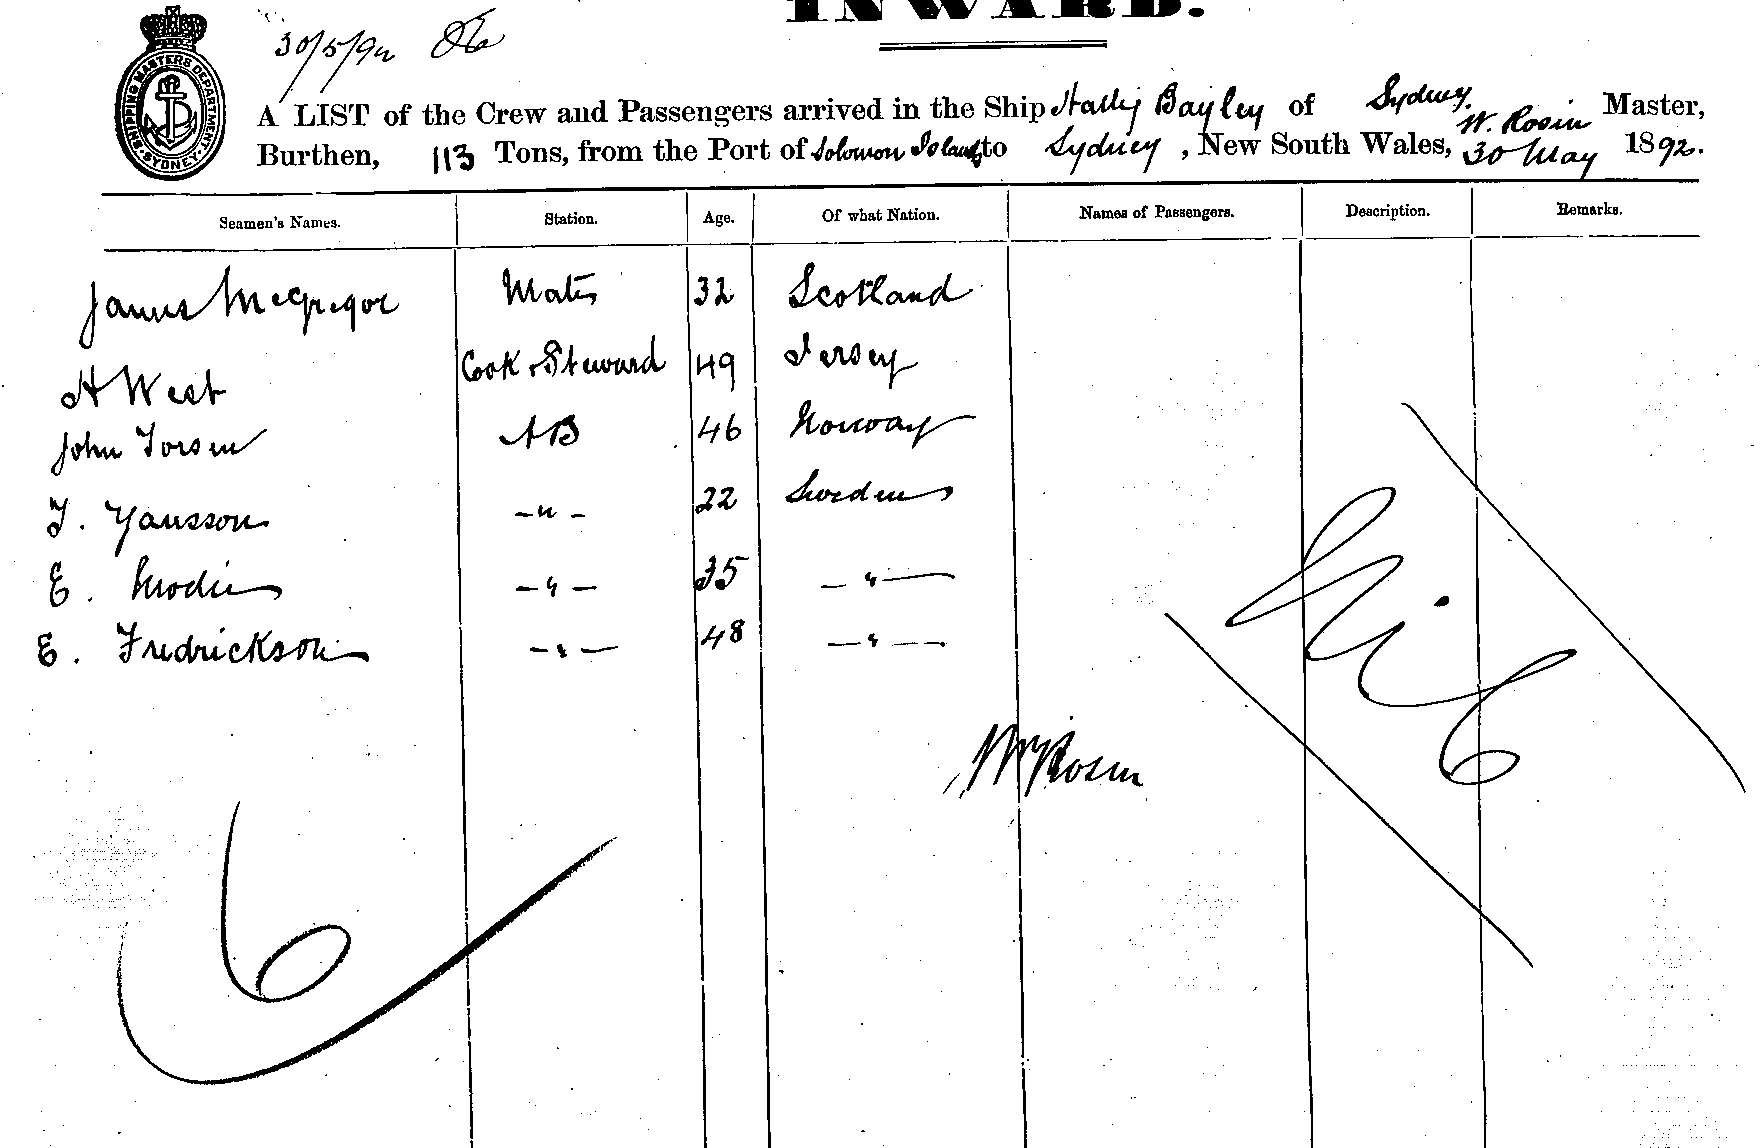 INWARD.
30/5/92
SHIPPING MASTERS DEPARTMENT SYDNEY
A LIST of the Crew and Passengers arrived in the Ship Hally Bayley of Sydney. W. Rosin Master,
Burthen, 113 Tons, from the Port of Solomon Islands to Sydney, New South Wales, 30 May 1892.
Seamen's Names. Station. Age. Of what Nation. Names of Passengers. Description. Remarks.
James McGregor Mate 32 Scotland
H West Cook & Steward 49 Jersey
John Torsen AB 46 Norway
T. Yansson -"- 22 Sweden
E. -"- 35 -"-
E. Fredrickson -"- 48 -"-
Nil
6
Wm Rosin
6